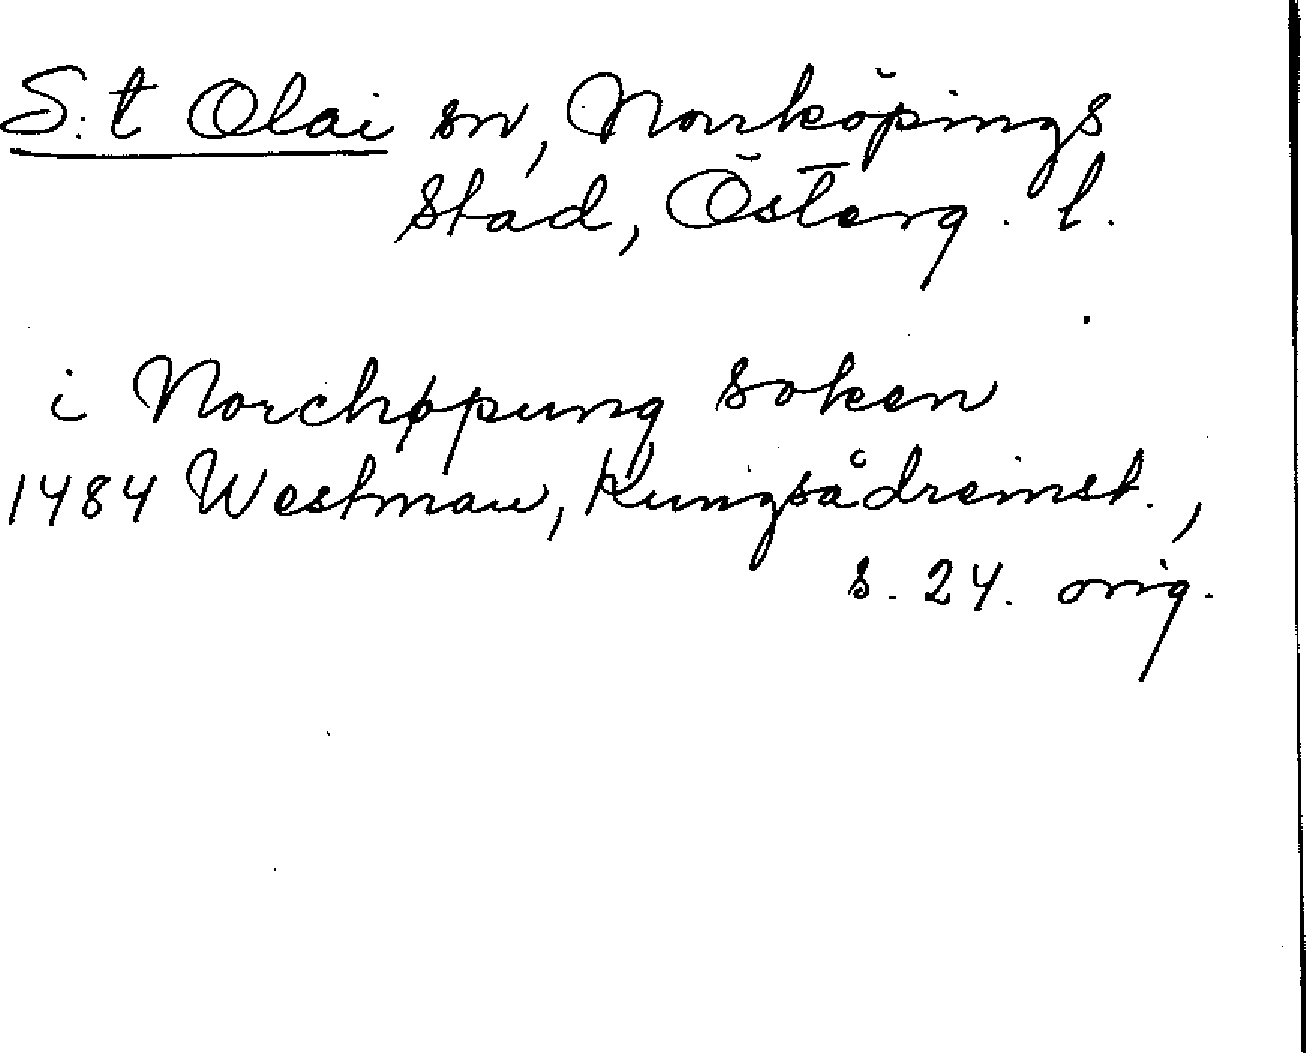 S:t Olai sn, Norrköpings
stad, Österg. l.
i Norchøpung soken
1484 Westman, Kungsådreinst.,
s. 24. orig.